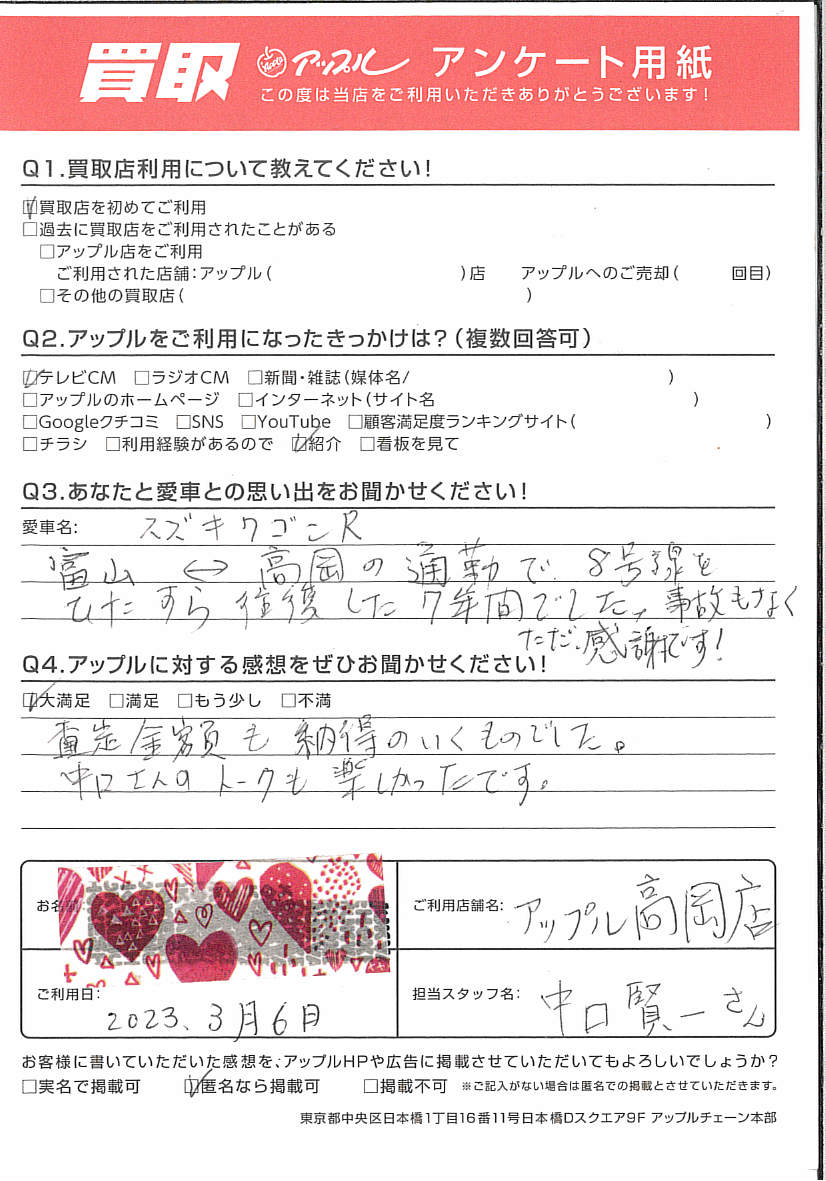 買取 アップル アンケート用紙
この度は当店をご利用いただきありがとうございます!
Q1.買取店利用について教えてください!
☑買取店を初めてご利用
□過去に買取店をご利用されたことがある
□アップル店をご利用
ご利用された店舗:アップル( )店 アップルへのご売却( 回目)
□その他の買取店( )
Q2.アップルをご利用になったきっかけは?(複数回答可)
☑テレビCM □ラジオCM □新聞・雑誌(媒体名/ )
□アップルのホームページ □インターネット(サイト名 )
□Googleクチコミ □SNS □YouTube □顧客満足度ランキングサイト( )
□チラシ □利用経験があるので ☑紹介 □看板を見て
Q3.あなたと愛車との思い出をお聞かせください!
愛車名: スズキワゴンR
富山 ↔ 高岡の通勤で、8号線を
ひたすら往復した7年間でした、事故もなく
ただ、感謝です!
Q4.アップルに対する感想をぜひお聞かせください!
☑大満足 □満足 □もう少し □不満
査定金額も納得のいくものでした。
中口さんのトークも楽しかったです。
お名前:
ご利用店舗名: アップル高岡店
ご利用日: 2023、3月6日
担当スタッフ名: 中口賢一さん
お客様に書いていただいた感想を、アップルHPや広告に掲載させていただいてもよろしいでしょうか?
□実名で掲載可 ☑匿名なら掲載可 □掲載不可 ※ご記入がない場合は匿名での掲載とさせていただきます。
東京都中央区日本橋1丁目16番11号日本橋Dスクエア9F アップルチェーン本部